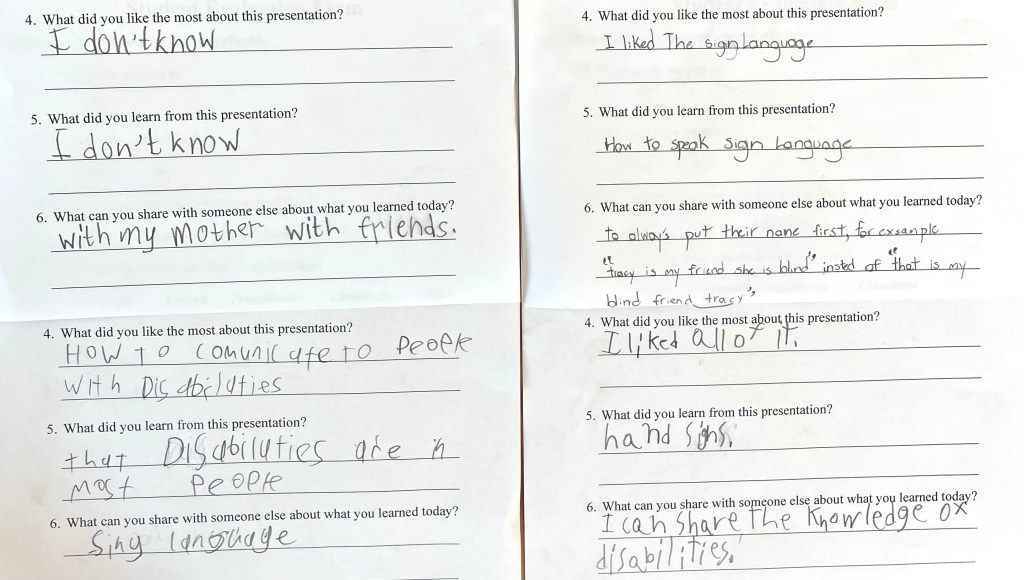 4. What did you like the most about this presentation?
I don't know
5. What did you learn from this presentation?
I don't know
6. What can you share with someone else about what you learned today?
with my mother with friends.
4. What did you like the most about this presentation?
How to comunicate to People
with Disabiluties
5. What did you learn from this presentation?
that Disabiluties are in
most People
6. What can you share with someone else about what you learned today?
Sing language
4. What did you like the most about this presentation?
I liked The sign Language
5. What did you learn from this presentation?
How to speak sign Language
6. What can you share with someone else about what you learned today?
to always put their name first, for exsample
"tracy is my friend she is blind" insted of "that is my
blind friend tracy",
4. What did you like the most about this presentation?
I liked all of it.
5. What did you learn from this presentation?
hand signs.
6. What can you share with someone else about what you learned today?
I can share the knowledge of
disabilities.